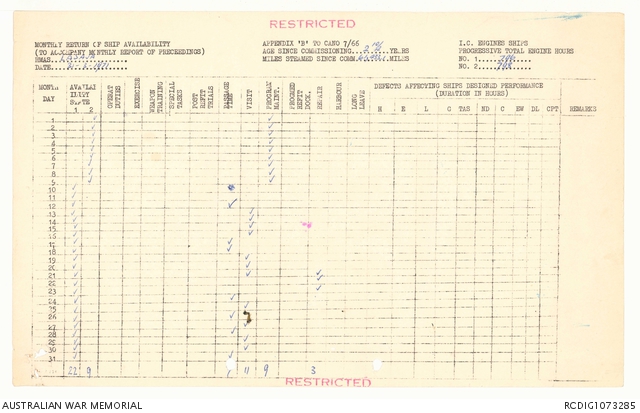 RESTRICTED
MONTHLY RETURN OF SHIP AVAILABILITY
(TO ACCOMPANY MONTHLY REPORT OF PROCEEDINGS)
HMAS
DATE
APPENDIX 'B' TO CANO 7/66
AGE SINCE COMMISSIONING YEARS
MILES STEAMED SINCE COMM. MILES
I.C. ENGINES SHIPS
PROGRESSIVE TOTAL ENGINE HOURS
NO. 1
NO. 2
MONTH
DAY
AVAILABILITY STATE
1 2
OPERAT DUTIES
EXERCISE
WEAPON TRAINING
SPECIAL TASKS
POST REFIT TRIALS
PASSAGE TIME
VISIT
PROGRAM MAINT.
PROCEED REFIT DOCK.
REPAIR
HARBOUR
LONG LEAVE
DEFECTS AFFECTING SHIPS DESIGNED PERFORMANCE
(DURATION IN HOURS)
H E L O TAS ND C EW DL CPT
REMARKS
1
2
3
4
5
6
7
8
9
10
11
12
13
14
15
16
17
18
19
20
21
22
23
24
25
26
27
28
29
30
31
22 9 11 9 3
RESTRICTED
AUSTRALIAN WAR MEMORIAL
RCDIG1073285